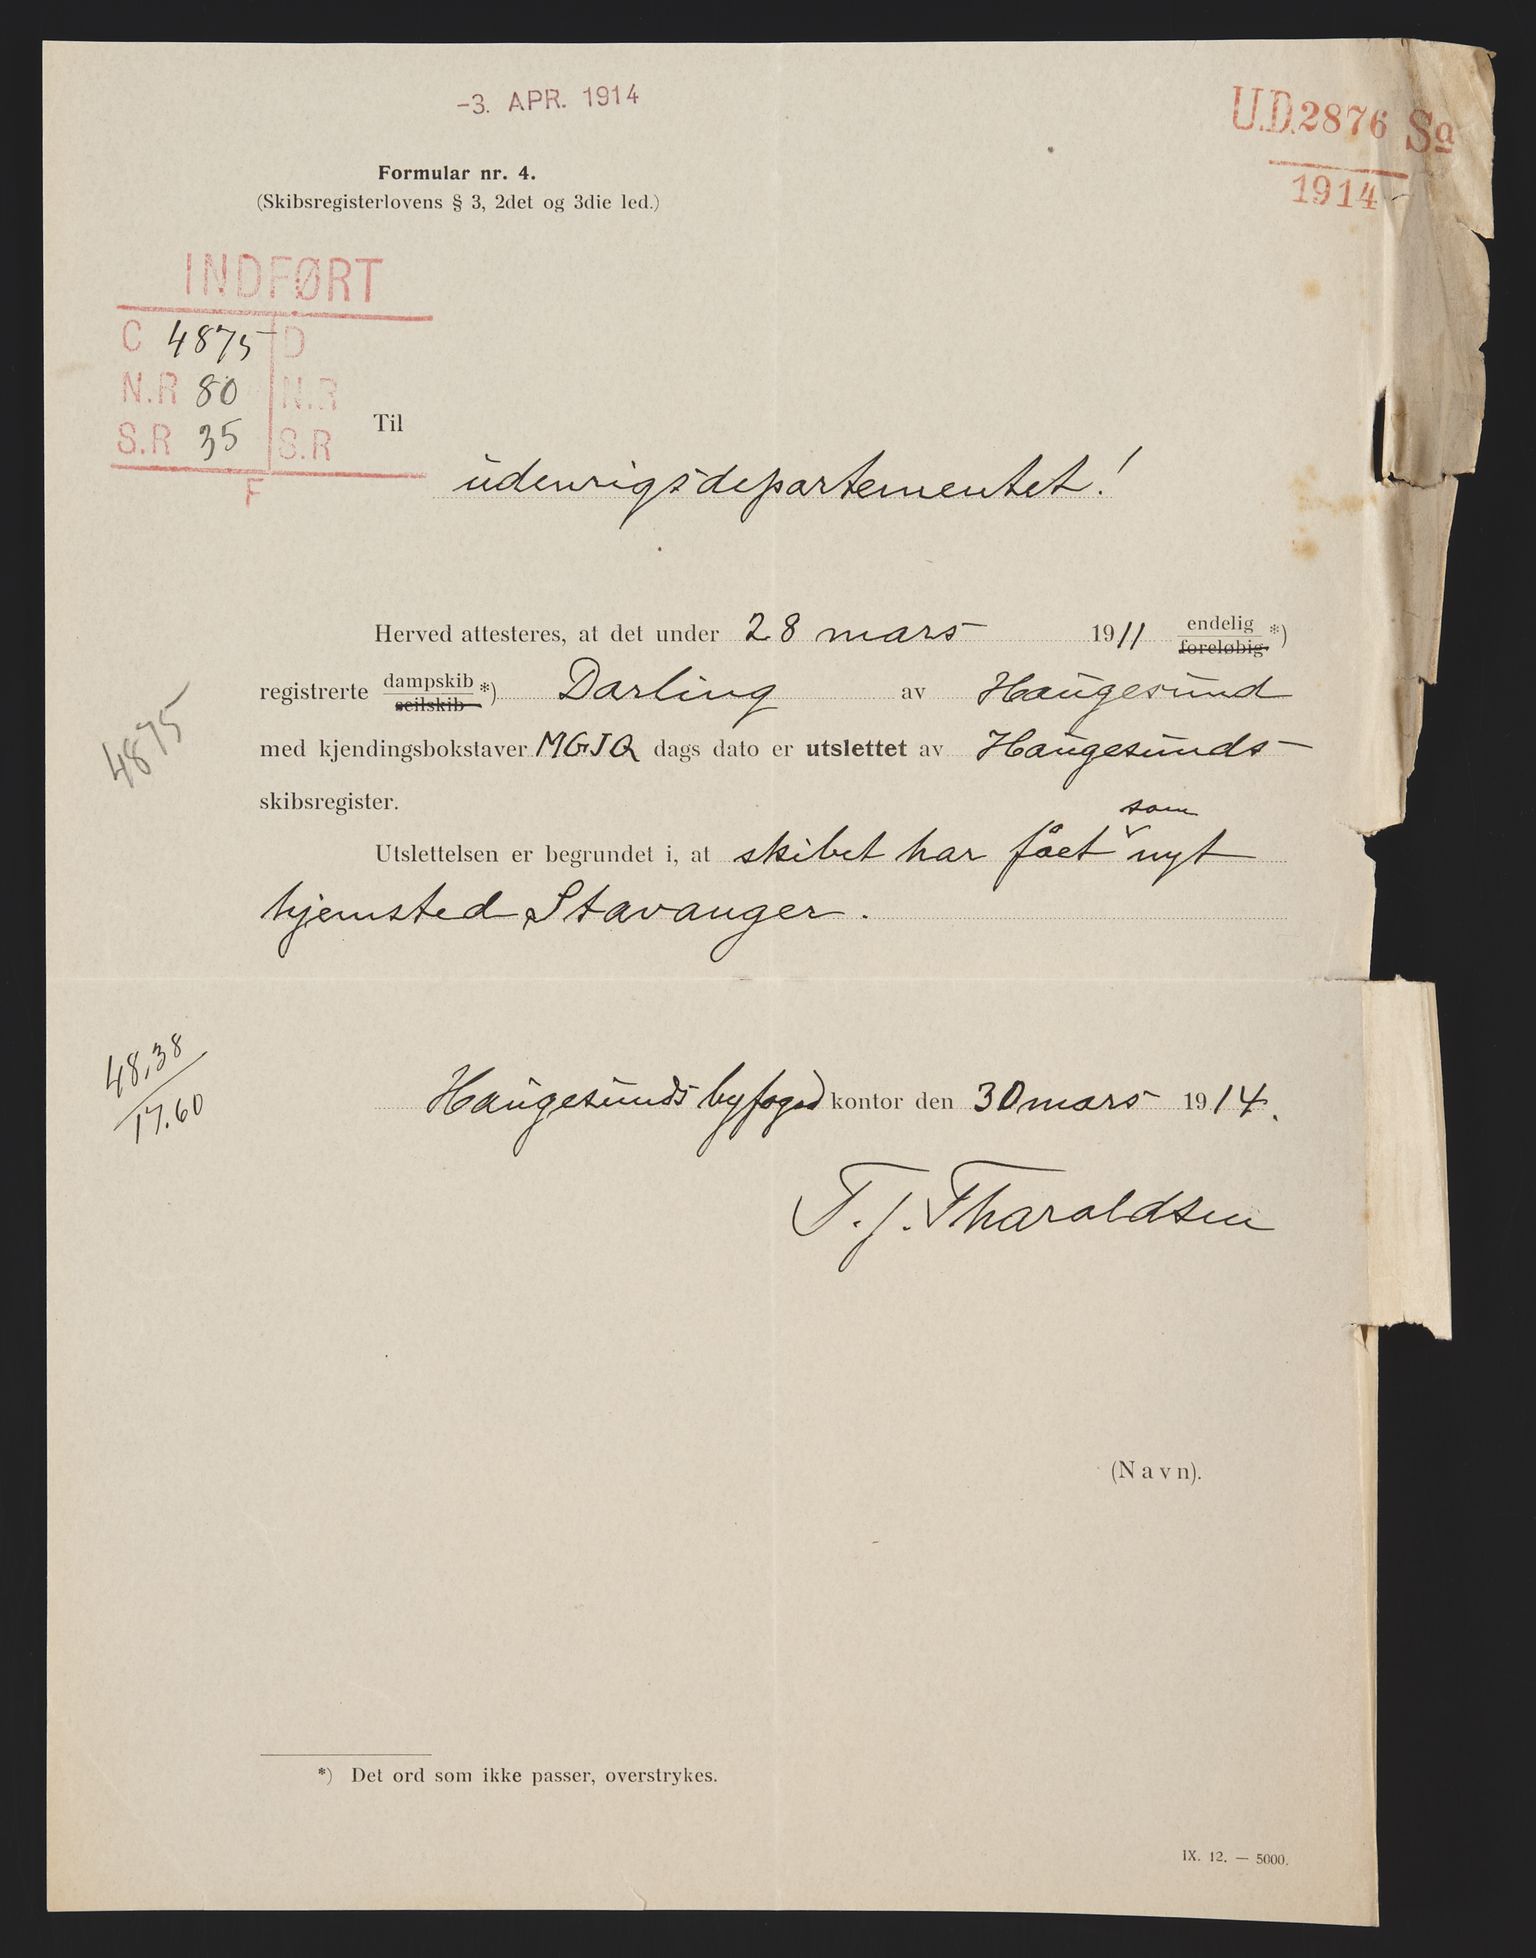 -3. APR. 1914
U.D.2876 Sa
1914
Formular nr. 4.
(Skibsregisterlovens § 3, 2det og 3die led.)
INDFØRT
C 4875 D
N.R 80 N.R
S.R 35 S.R
F
Til
udenrigsdepartementet!
Herved attesteres, at det under 28 mars 1911 endelig *)
foreløbig
registrerte dampskib *) Darling av Haugesund
seilskib
4875
med kjendingsbokstaver MGJQ dags dato er utslettet av Haugesunds
skibsregister.
som
Utslettelsen er begrundet i, at skibet har fået nyt
hjemsted Stavanger.
48,38
17.60
Haugesunds byfogedkontor den 30 mars 1914.
T. J. Tharaldsen
(Navn).
*) Det ord som ikke passer, overstrykes.
IX. 12. — 5000.